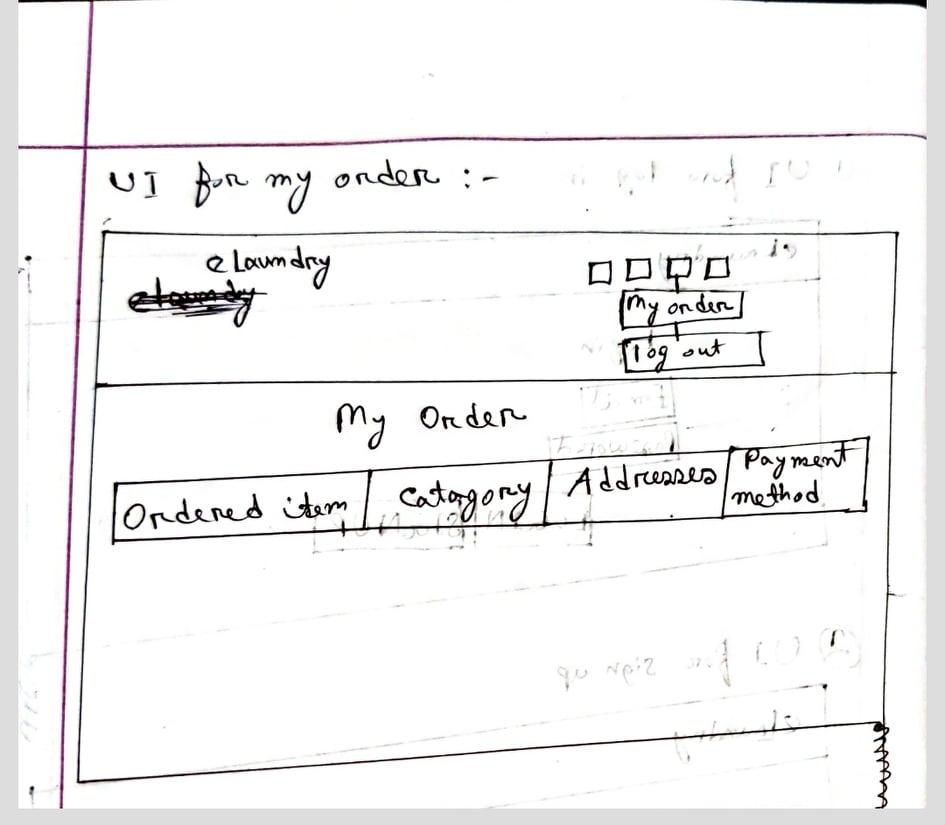 UI for my order :-
eLaundry
My order
log out
My Order
Ordered item
Catagory
Addresses
Payment
method